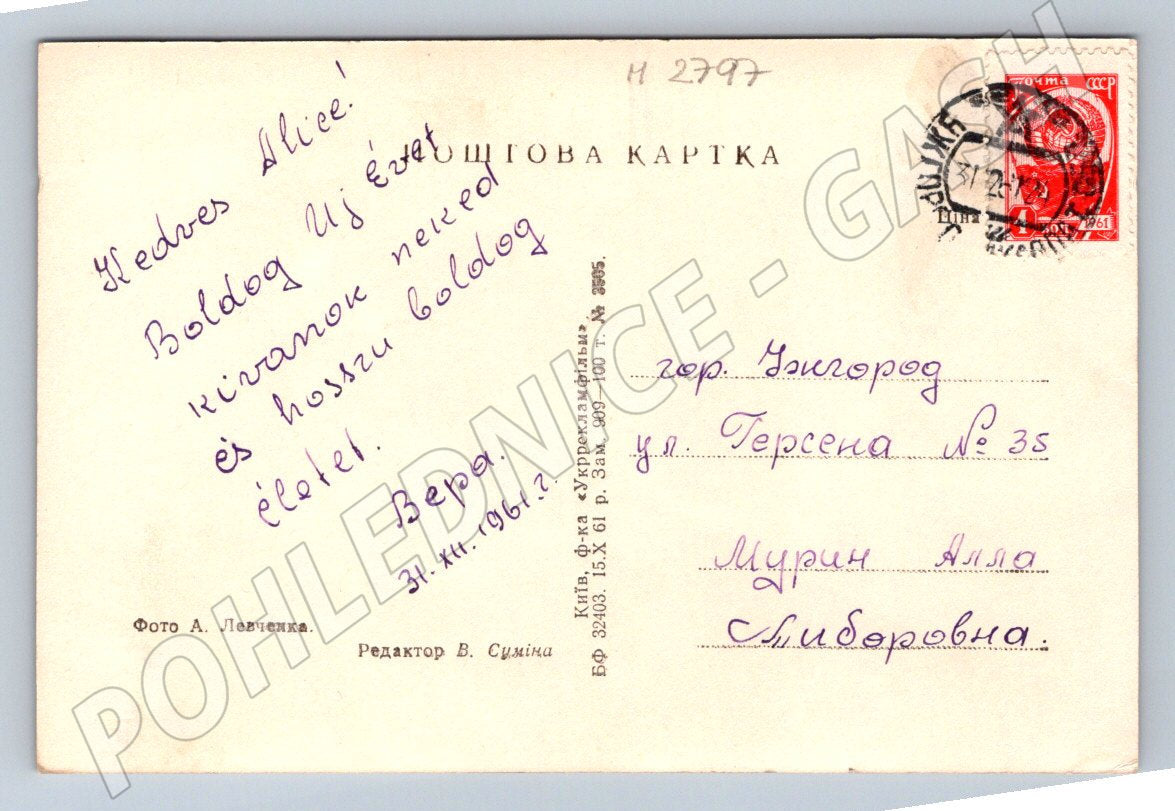 И 2797
ПОШТОВА КАРТКА
почта СССР
1961
4
Ціна
31 12
Kedves Alice!
Boldog Uj Évet
kivanok neked
és hosszu boldog
életet.
Вера.
31.XII.1961 г.
Фото А. Левченка.
Редактор В. Суміна
Київ, ф-ка «Укррекламфільм»
БФ 32403. 15.X 61 р. Зам. 909—100 т. № 3505.
гор. Ужгород
ул. Герсена № 35
Мурин Алла
Тиборовна.
POHLEDNICE - GASH